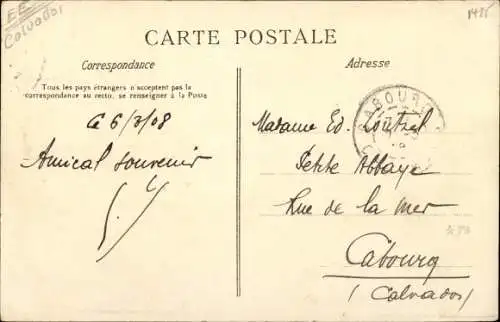 EE
Calvados
1425
CARTE POSTALE
Correspondance
Adresse
Tous les pays étrangers n'acceptent pas la
correspondance au recto, se renseigner à la Poste
CABOURG
Ce 6/3/08
Amical souvenir
Madame Ed. Loutrel
Petite Abbaye
Rue de la mer
Cabourg
(Calvados)